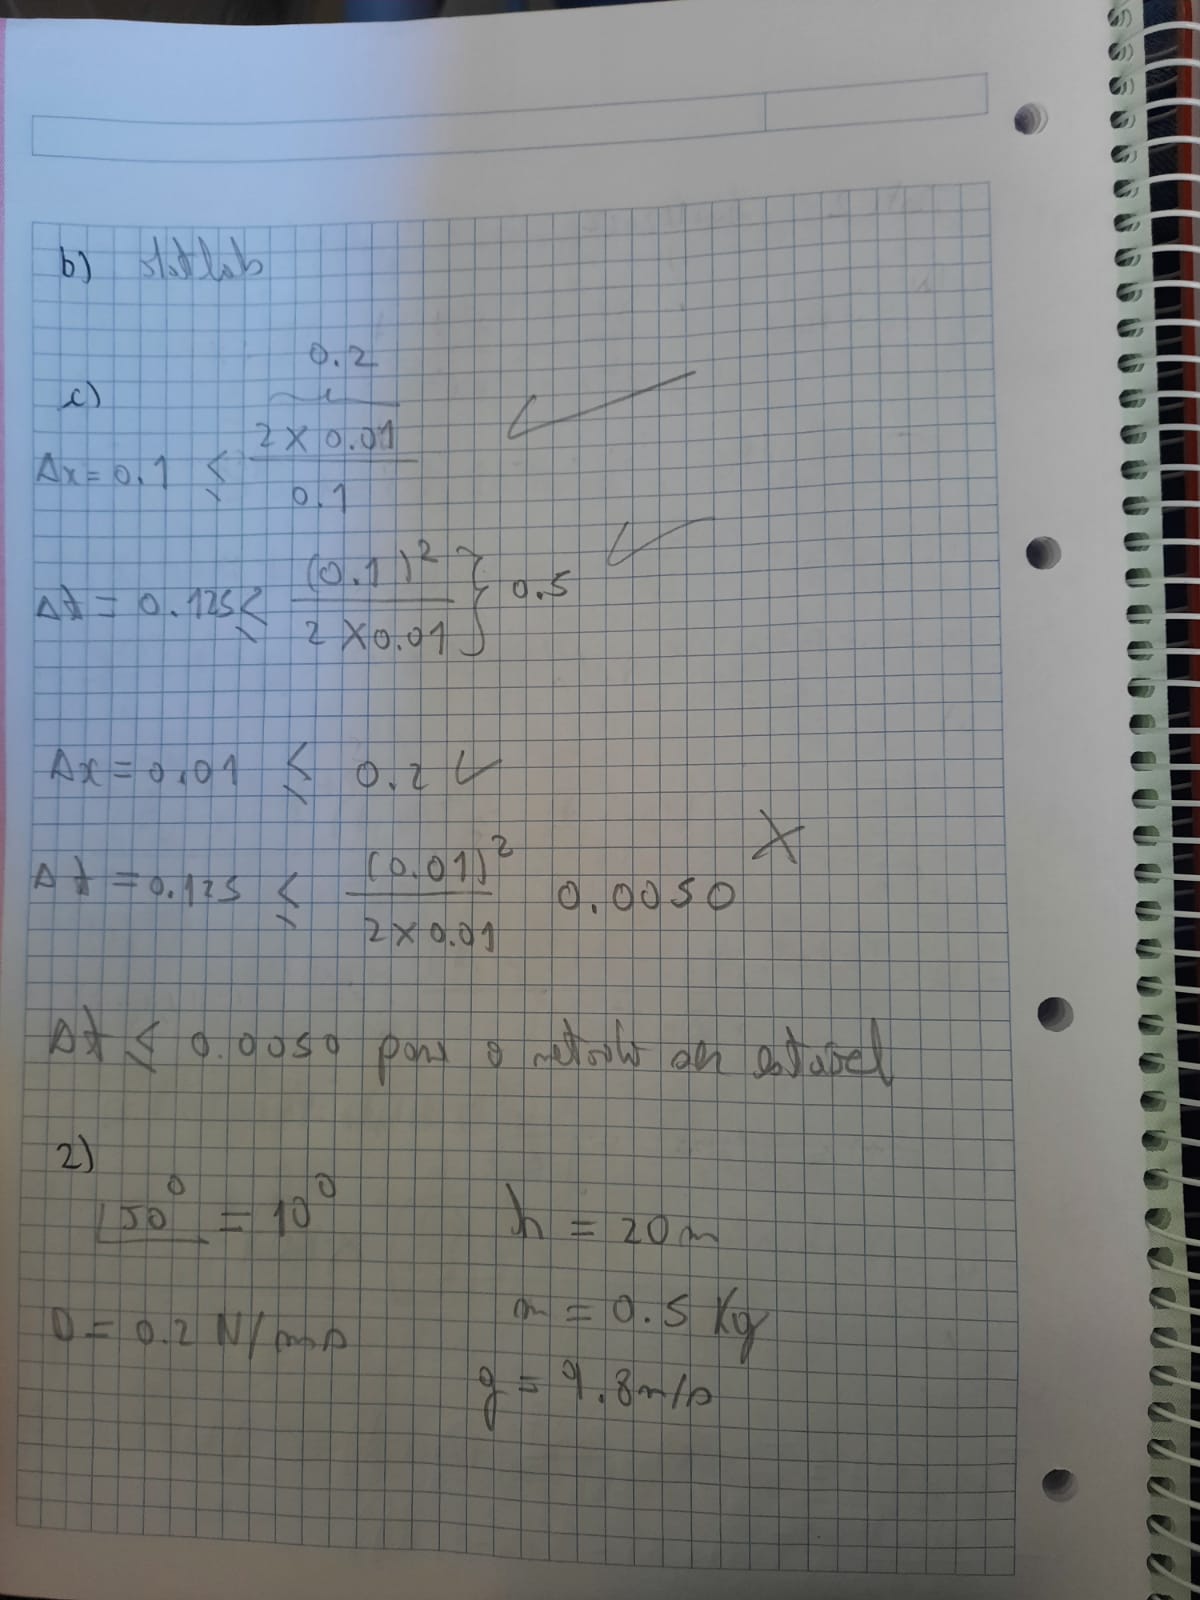 b) Matlab
c)
0.2
Δx = 0.1 ≤ (2 × 0.01) / 0.1 ✓
Δt = 0.125 ≤ (0.1)² / (2 × 0.01) } 0.5 ✓
Δx = 0.01 ≤ 0.2 ✓
Δt = 0.125 ≤ (0.01)² / (2 × 0.01) 0.0050 X
Δt ≤ 0.0050 para o metodo ser estavel
2)
50° = 10° h = 20m
D = 0.2 N/ms m = 0.5 Kg
g = 9.8m/s